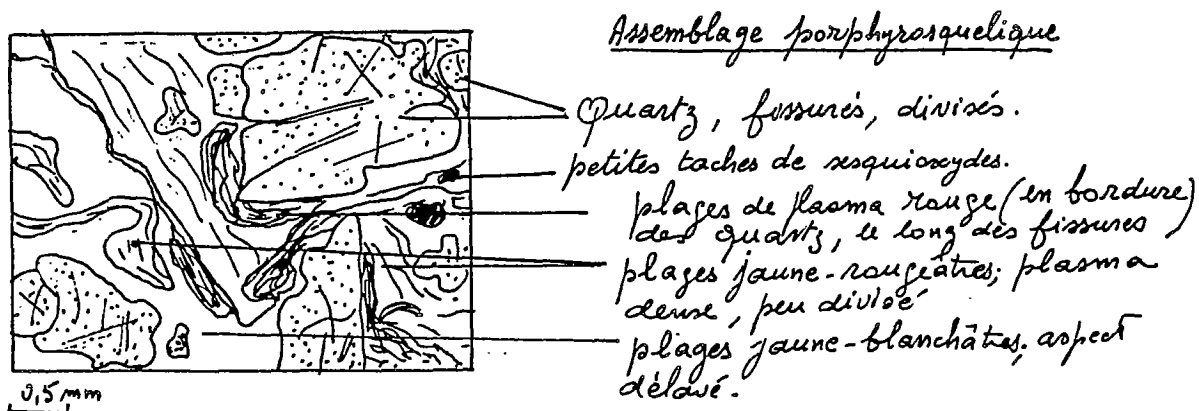 Assemblage porphyrosquelique
Quartz, fissurés, divisés.
petites taches de sesquioxydes.
plages de plasma rouge (en bordure)
des quartz, le long des fissures
plages jaune-rougeâtres; plasma
dense, peu divisé
plages jaune-blanchâtres; aspect
délavé.
0,5 mm